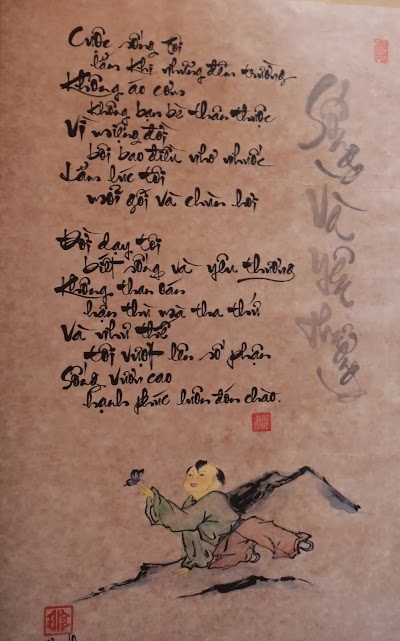 Cuộc sống tôi
lắm khi những đêm trường
Không áo cơm
không bạn bè thân thuộc
Vì miệng đời
bôi bao điều nhơ nhuốc
Lắm lúc tôi
mỏi gối và chùn hơi
Đời dạy tôi
biết sống và yêu thương
Không than oán
hận thù mà tha thứ
Và như thế
tôi vượt lên số phận
Sống vươn cao
hạnh phúc luôn đón chào.
Sống và yêu thương